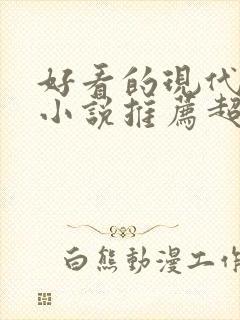 好看的現代
小說推薦超
白熊動漫工作